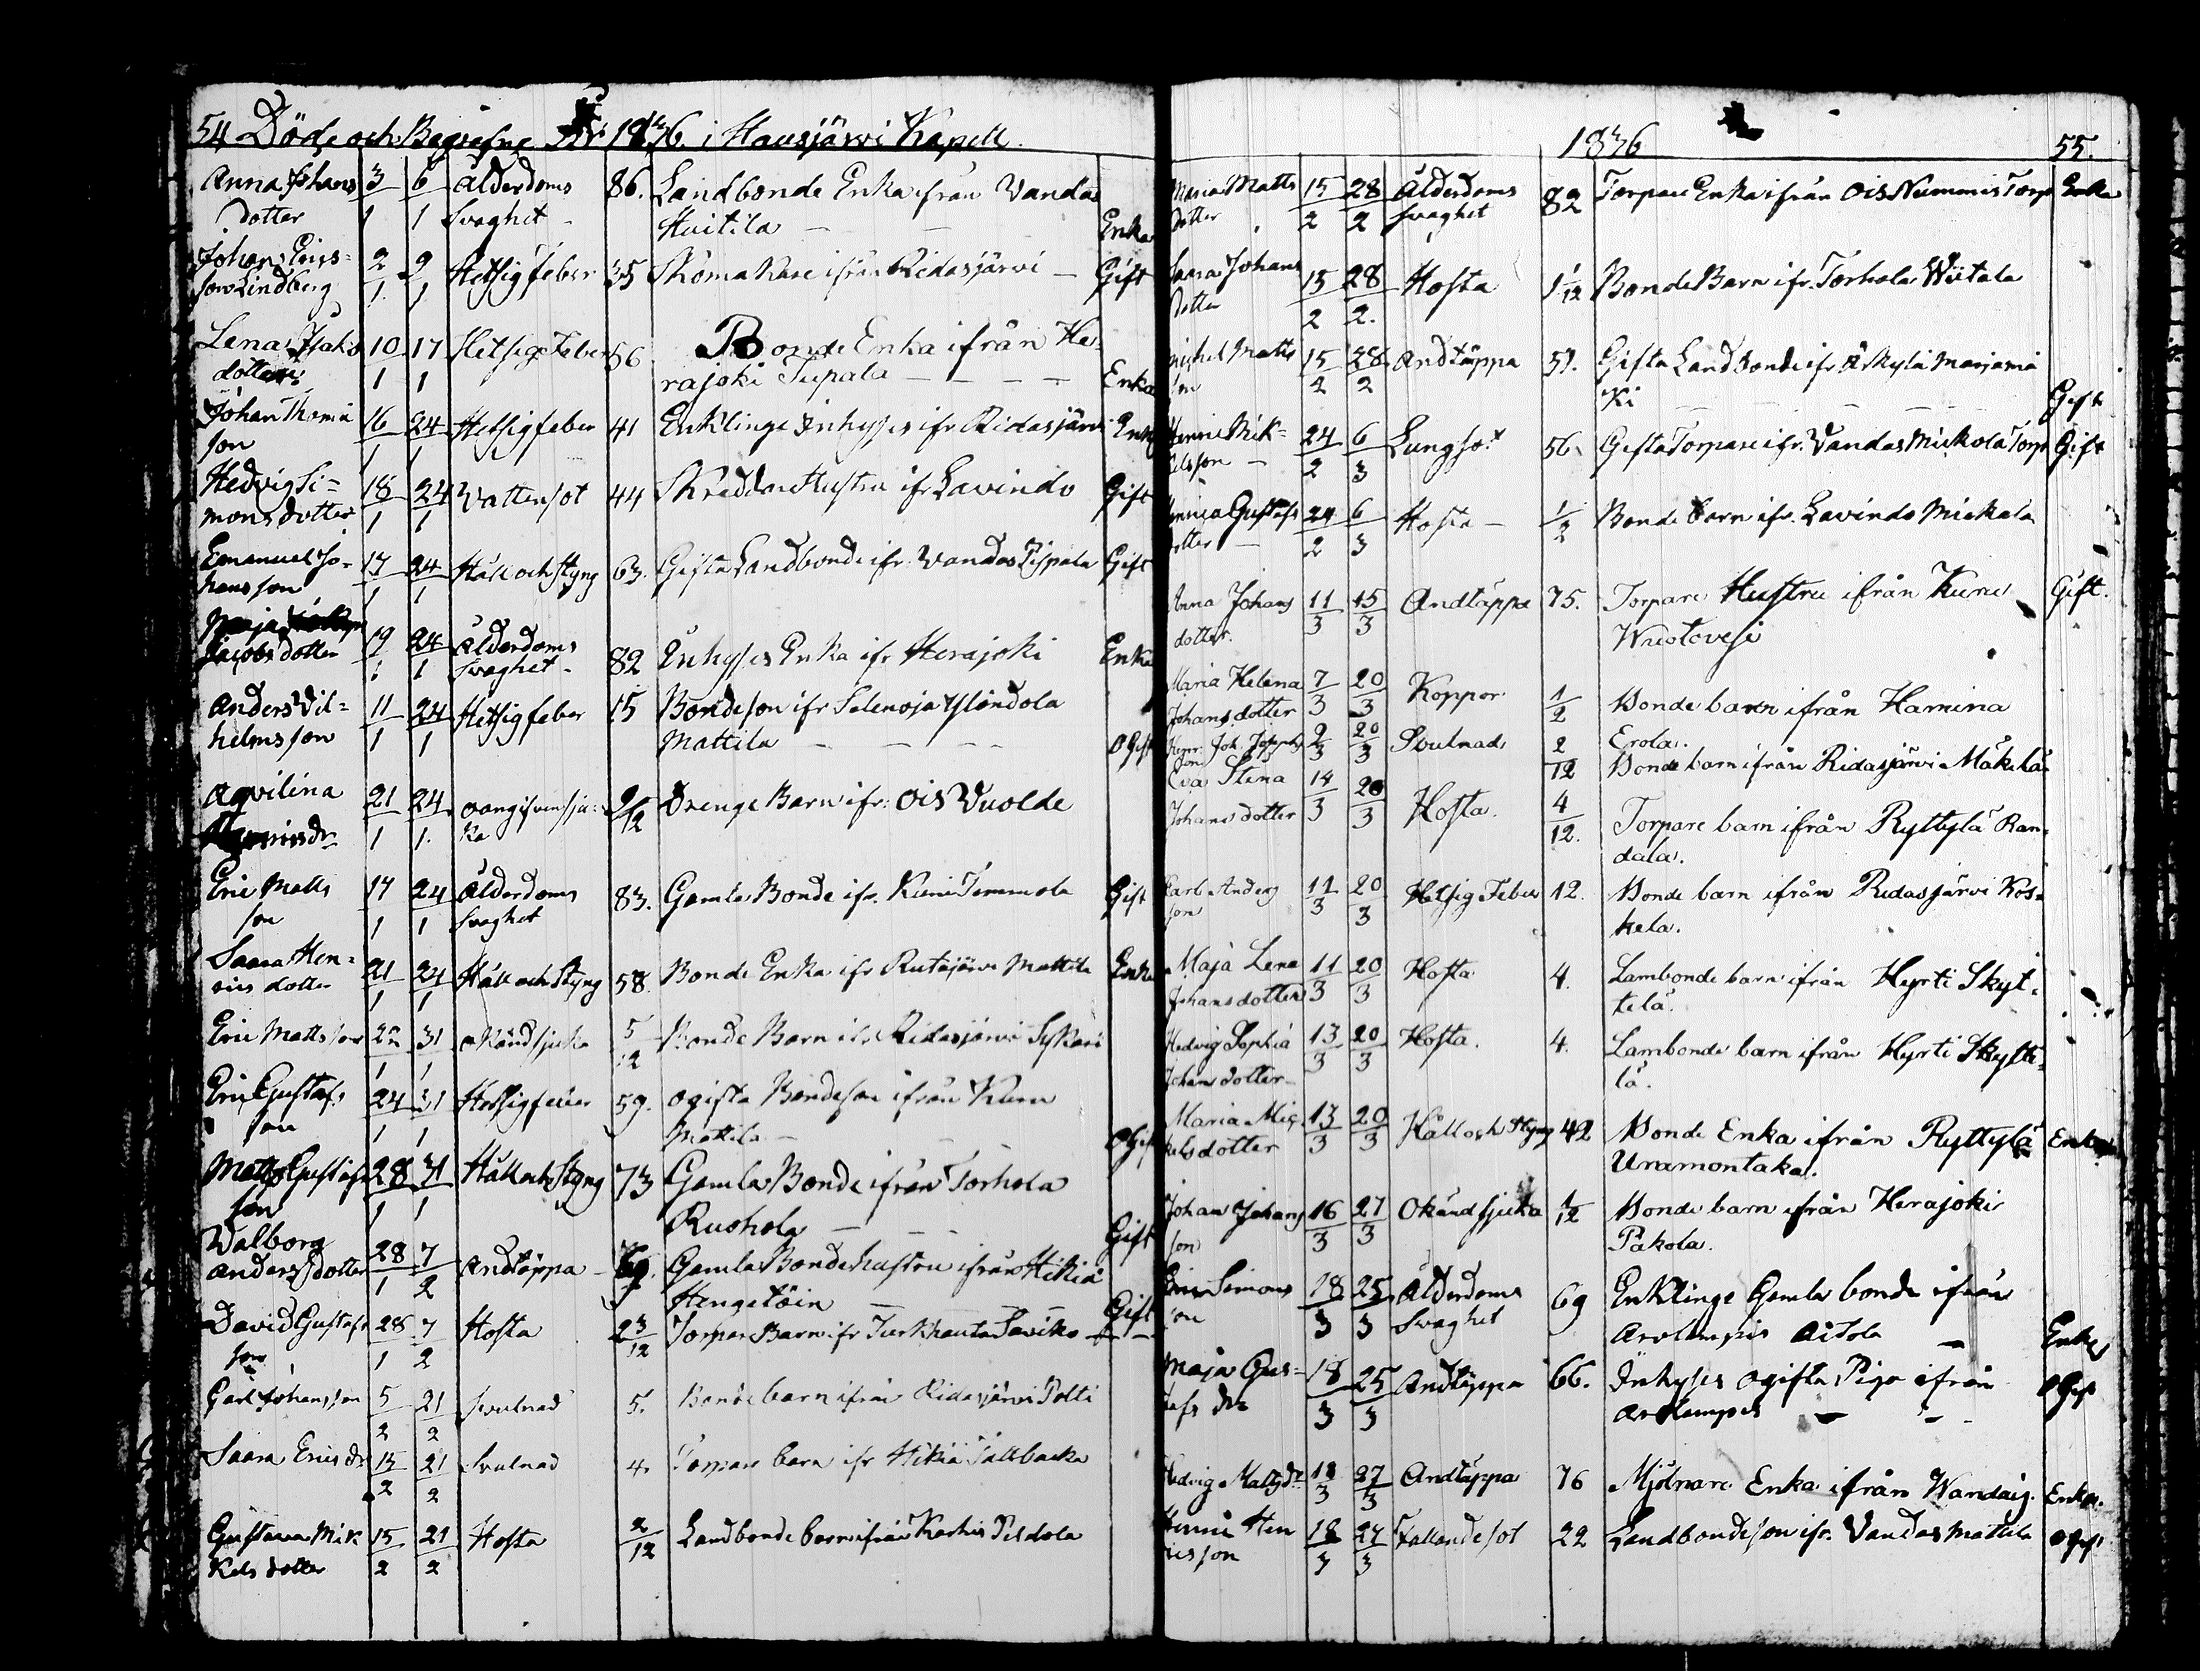 54 Döde och Begrafne År 1836. i Hausjärvi Kapell.
Anna Johans 3 6 Ålderdoms 86. Landbonde Enka ifrån Vandas
dotter 1 1 Svaghet - Huitila - - Enka
Johan Erics- 2 9 Hetsig feber 35 Skomakare ifrån Ridasjärvi - Gift
son Lindberg 1 1
Lena Isaks 10 17 Hetsig Feber 56 Bonde Enka ifrån He
dotter 1 1 rajoki Tupala - - - - Enka
Johan Thoma 16 24 Hetsig feber 41 Enklinge Inhyses ifr Ridasjärvi Enkl
son 1 1
Hedvig Si- 18 24 Vattensot 44 Skreddare Hustru ifr Lavindo Gift
mons dotter 1 1
Emanuel Jo- 17 24 Håll och Styng 63. Gifta Landbonde ifr. Vandas Pispala Gift
hansson 1 1
Maja
Jacobs dotter 19 24 Ålderdoms 82 Inhyses Enka ifr Herajoki Enka
1 1 Svaghet -
Anders Vil- 11 24 Hetsig feber 15 Bondeson ifr Selenoja Yländola
helms son 1 1 Mattila - - - - Ogift
Aqvilina 21 24 oangifven sju- 2/12 Drenge Barn ifr: Ois Vuolde
1 1. ka
Eric Matts 17 24 Ålderdoms 83. Gamla Bonde ifr. Kuru Temmola Gift
son 1 1 Svaghet
Saara Hen- 21 24 Håll och Styng 58. Bonde Enka ifr Rutajärvi Mattila Enka
rics dotter 1 1
Eric Mattsson 22 31 okänd sjuka 5/12 Bonde Barn ifr Ridasjärvi Sykäri
1 1
Eric Gustafs 24 31 Hetsig feber 59. Ogifta Bondeson ifrån Kuru
son 1 1 Mattila - - Ogift
Matts Gustafs 28 31 Håll och Styng 73 Gamla Bonde ifrån Torhola
son 1 1 Ruohola - - Gift
Walborg
Anders dotter 28 7 Andtäppa - 69. Gamla Bondehustru ifrån Hikiä
1 2 Hengetöin - - - Gift
David Gustafs 28 7 Hosta 2 3/12 Torpar Barn ifr Turkhauta Saviko - -
son 1 2
Carl Johansson 5 21 Svulnad 5. Bonde barn ifrån Ridasjärvi Polti
2 2
Saara Erics dr 15 21 Svulnad 4. Torpare barn ifr Hikiä Tallbacka
2 2
Gustava Mik 15 21 Hosta 2/12 Landbonde barn ifrån Karhis Peldola
kels dotter 2 2
1836 55.
Maria Matts 15 28 Ålderdoms 82 Torpare Enka ifrån Ois Nummis Torp Enka
dotter 2 2 svaghet
Saara Johans 15 28 Hosta 1 1/12 Bonde Barn ifr. Torhola Wiitala
dotter 2 2.
Michel Matts 15 28 Andtäppa 57. Gifta Landbonde ifr Erkylä Marjamä
son 2 2 ki - - - - Gift
Henric Mik- 24 6 Lungsot 56. Gifta Torpare ifr. Vandas Mickola Torp Gift
kelsson - 2 3
Gustafs 24 6 Hosta - 1/2 Bonde barn ifr. Lavindo Mickala
dotter - 2 3
Anna Johans 11 15 Andtäppa 75. Torpare Hustru ifrån Kuru Gift.
dotter. 3 3 Wuotovesi
Maria Helena 7 20 Koppor 1/2 Bonde barn ifrån Hamina
Johans dotter 3 3 Erola.
Henr. Joh. Josephs 9 20 Svulnad 2/12 Bonde barn ifrån Ridasjärvi Mäkelä
son 3 3
Eva Stena 14 20 Hosta. 4/12. Torpare barn ifrån Ryttylä Ran-
Johans dotter 3 3 dala.
Carl Anders 11 20 Hetsig Feber 12. Bonde barn ifrån Ridasjärvi Kos-
son 3 3 kela.
Maja Lena 11 20 Hosta 4. Lambonde barn ifrån Hyrti Skyt-
Johansdotter 3 3 telä.
Hedvig Sophia 13 20 Hosta. 4. Lambonde barn ifrån Hyrti Skytte-
Johans dotter 3 3 lä.
Maria Mic 13 20 Håll och Styng 42 Bonde Enka ifrån Ryttylä Enka
kelsdotter 3 3 Uramontaka.
Johan Johans 16 27 Okänd sjuka 1/12 Bonde barn ifrån Herajoki
son 3 3 Pakola.
Eric Simons 18 25 Ålderdoms 69 Enklinge Gamla bonde ifrån
son 3 3 Svaghet Arolampis Aitola - Enkl
Maja Gus- 18 25 Andtäppa 66. Inhyses ogifta Piga ifrån
tafs dr 3 3 Arolampis - - Ogift
Hedvig Matts dr 18 27 Andtäppa 76 Mjölnare Enka ifrån Wandais. Enka.
3 3
Henric Hen 18 27 Fallandesot 22 Landbondeson ifr. Vandas Mattila Ogift
ricsson 3 3